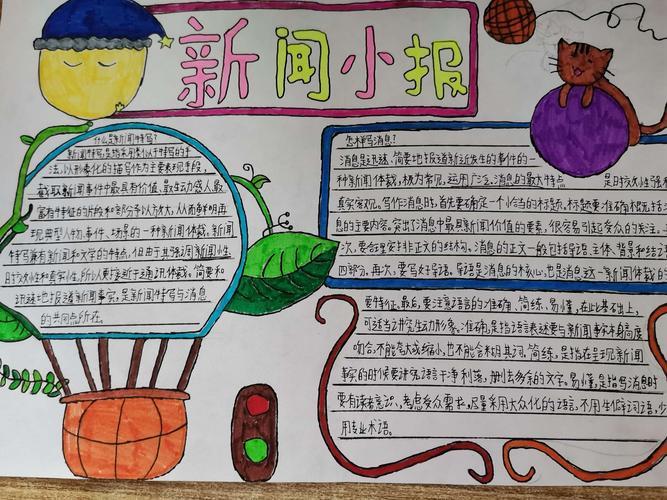 新闻小报
什么是新闻特写？
新闻特写是指采用类似于特写的手
法，以形象化的描写作为主要表现手段，
截取新闻事件中最具有价值、最生动感人、最
富有特征的片段和部分予以放大，从而鲜明再
现典型人物、事件、场景的一种新闻体裁。新闻
特写兼有新闻和文学的特点，但由于其强调新闻性、
时效性和真实性，所以更接近于通讯体裁。简要和
迅速地报道新闻事实，是新闻特写与消息
的共同点所在。
怎样写消息？
消息是迅速、简要地报道新近发生的事件的一
种新闻体裁，极为常见，运用广泛。消息的最大特点 是时效性强和
真实客观。写作消息时，首先要确定一个恰当的标题，标题要准确概括
息的主要内容。突出了消息中最具新闻价值的要素，很容易引起受众的关注。
次，要合理安排正文的结构。消息的正文一般包括导语、主体、背景和结
四部分。再次，要写好导语。导语是消息的核心，也是消息这一新闻体裁的
要特征。最后，要注意语言的准确、简练、易懂，在此基础上，
可适当讲究生动形象。准确，是指语言表述要与新闻事实本身高度
吻合，不能夸大或缩小，也不能含糊其词。简练，是指在呈现新闻
事实的时候要讲究语言干净利落，删去多余的文字。易懂，是指写消息时
要有读者意识，考虑受众需求，尽量采用大众化的语言，不用生僻词语，少
用专业术语。